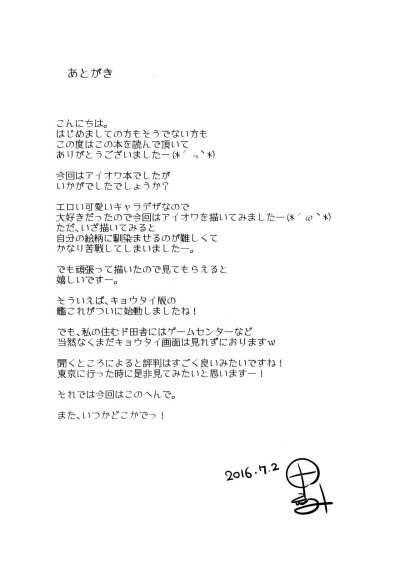 あとがき
こんにちは。
はじめましての方もそうでない方も
この度はこの本を読んで頂いて
ありがとうございましたー(*´ω`*)
今回はアイオワ本でしたが
いかがでしたでしょうか?
エロい可愛いキャラデザなので
大好きだったので今回はアイオワを描いてみましたー(*´ω`*)
ただ、いざ描いてみると
自分の絵柄に馴染ませるのが難しくて
かなり苦戦してしまいましたー。
でも頑張って描いたので見てもらえると
嬉しいですー。
そういえば、キョウタイ版の
艦これがついに始動しましたね!
でも、私の住むド田舎にはゲームセンターなど
当然なくまだキョウタイ画面は見れずにおりますw
聞くところによると評判はすごく良いみたいですね!
東京に行った時に是非見てみたいと思いますー!
それでは今回はこのへんで。
また、いつかどこかでっ!
2016.7.2